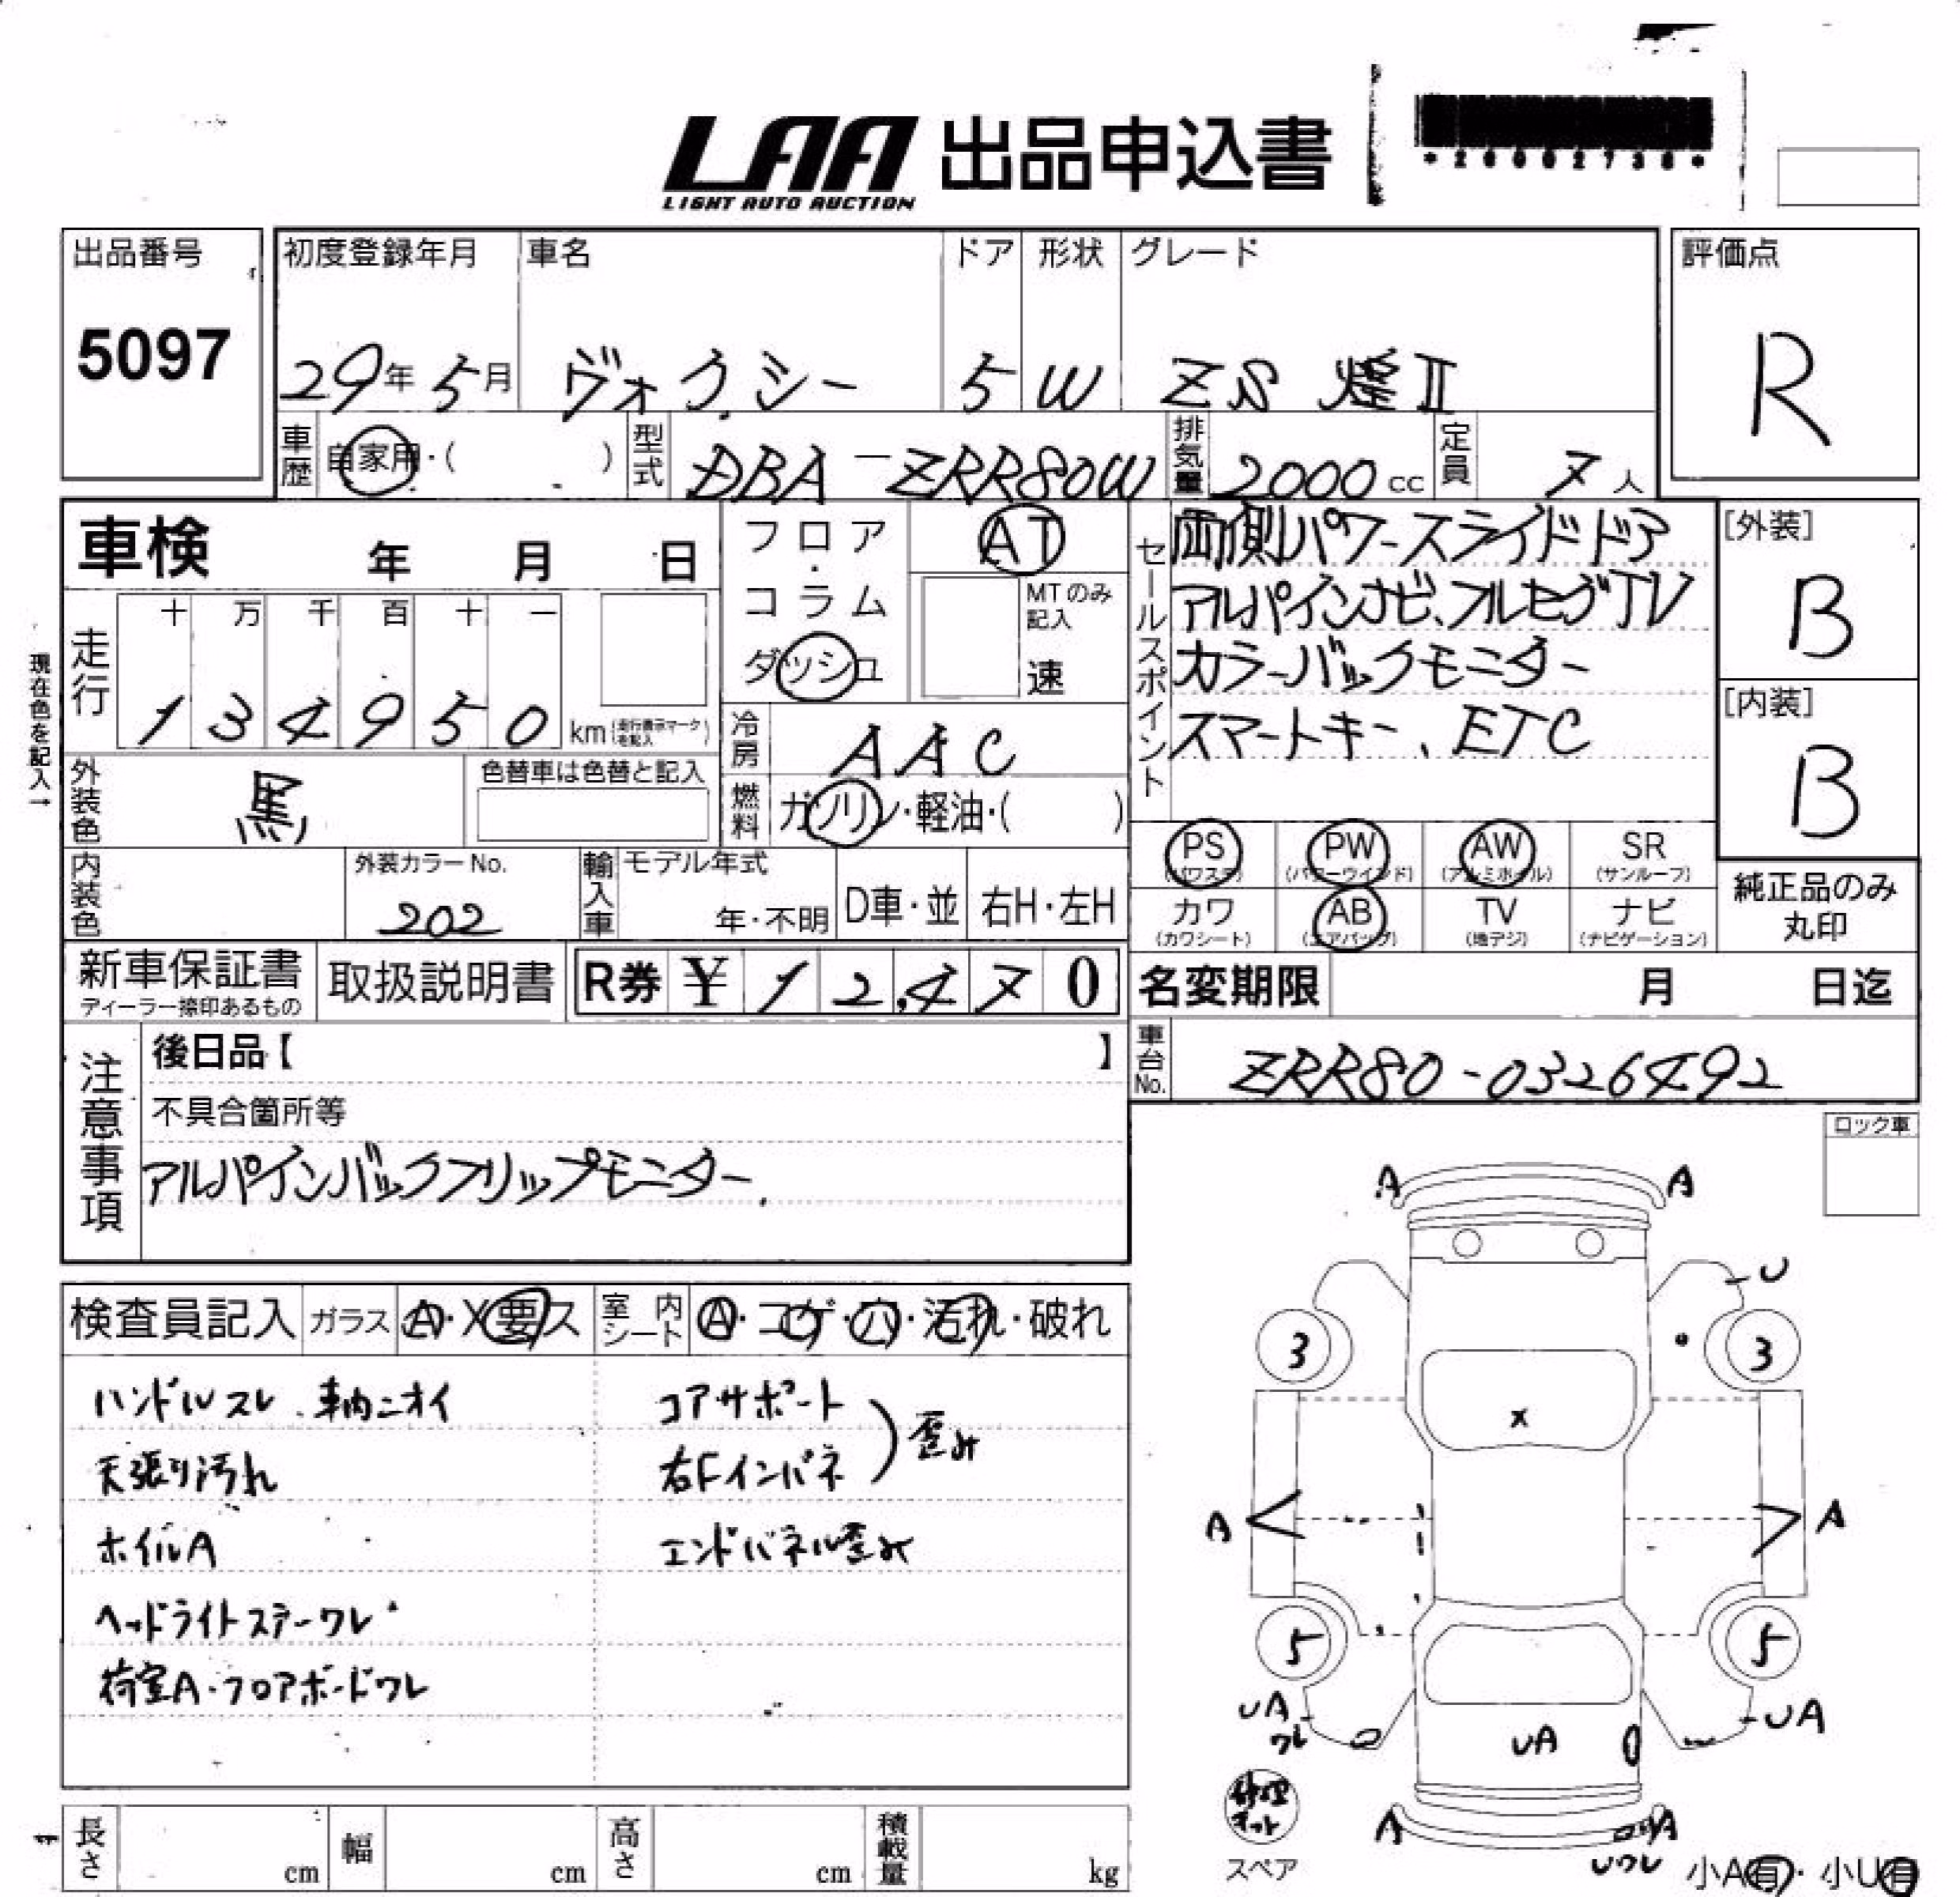 LAA 出品申込書
LIGHT AUTO AUCTION
*26002738*
出品番号
5097
初度登録年月 車名 ドア 形状 グレード
29年 5月 ヴォクシー 5 W ZS 煌Ⅱ
評価点
R
車歴 自家用・( ) 型式 DBA-ZRR80W 排気量 2000 cc 定員 7人
車検 年 月 日
フロア・コラム ダッシュ
AT
MTのみ記入
速
セールスポイント
両側パワースライドドア
アルパインナビ、フルセグTV
カラーバックモニター
スマートキー、ETC
[外装]
B
[内装]
B
現在色を記入→
走行 十 万 千 百 十 一
134950 km(走行表示マークを記入)
冷房 AAC
燃料 ガソリン・軽油・( )
外装色 黒
色替車は色替と記入
PS (パワステ) PW (パワーウインド) AW (アルミホイル) SR (サンルーフ)
カワ (カワシート) AB (エアバッグ) TV (地デジ) ナビ (ナビゲーション)
純正品のみ丸印
内装色
外装カラーNo.
202
輸入車 モデル年式
年・不明 D車・並 右H・左H
新車保証書
ディーラー捺印あるもの
取扱説明書
R券 ¥12,470
名変期限 月 日迄
車台No. ZRR80-0326492
注意事項
後日品【 】
不具合箇所等
アルパインバックフリップモニター
ロック車
検査員記入 ガラス A・X要ス 室内シート A・コゲ・穴・汚れ・破れ
ハンドルスレ、車内ニオイ
天張り汚れ
ホイルA
ヘッドライトステーワレ
荷室A・フロアボードワレ
コアサポート
右Fインパネ
歪み
エンドパネル歪み
A A
U
3 3
X
A A
5 5
UA
ワレ
UA
UA
修理キット
スペア
A A
Uワレ
小A有・小U有
長さ cm 幅 cm 高さ cm 積載量 kg